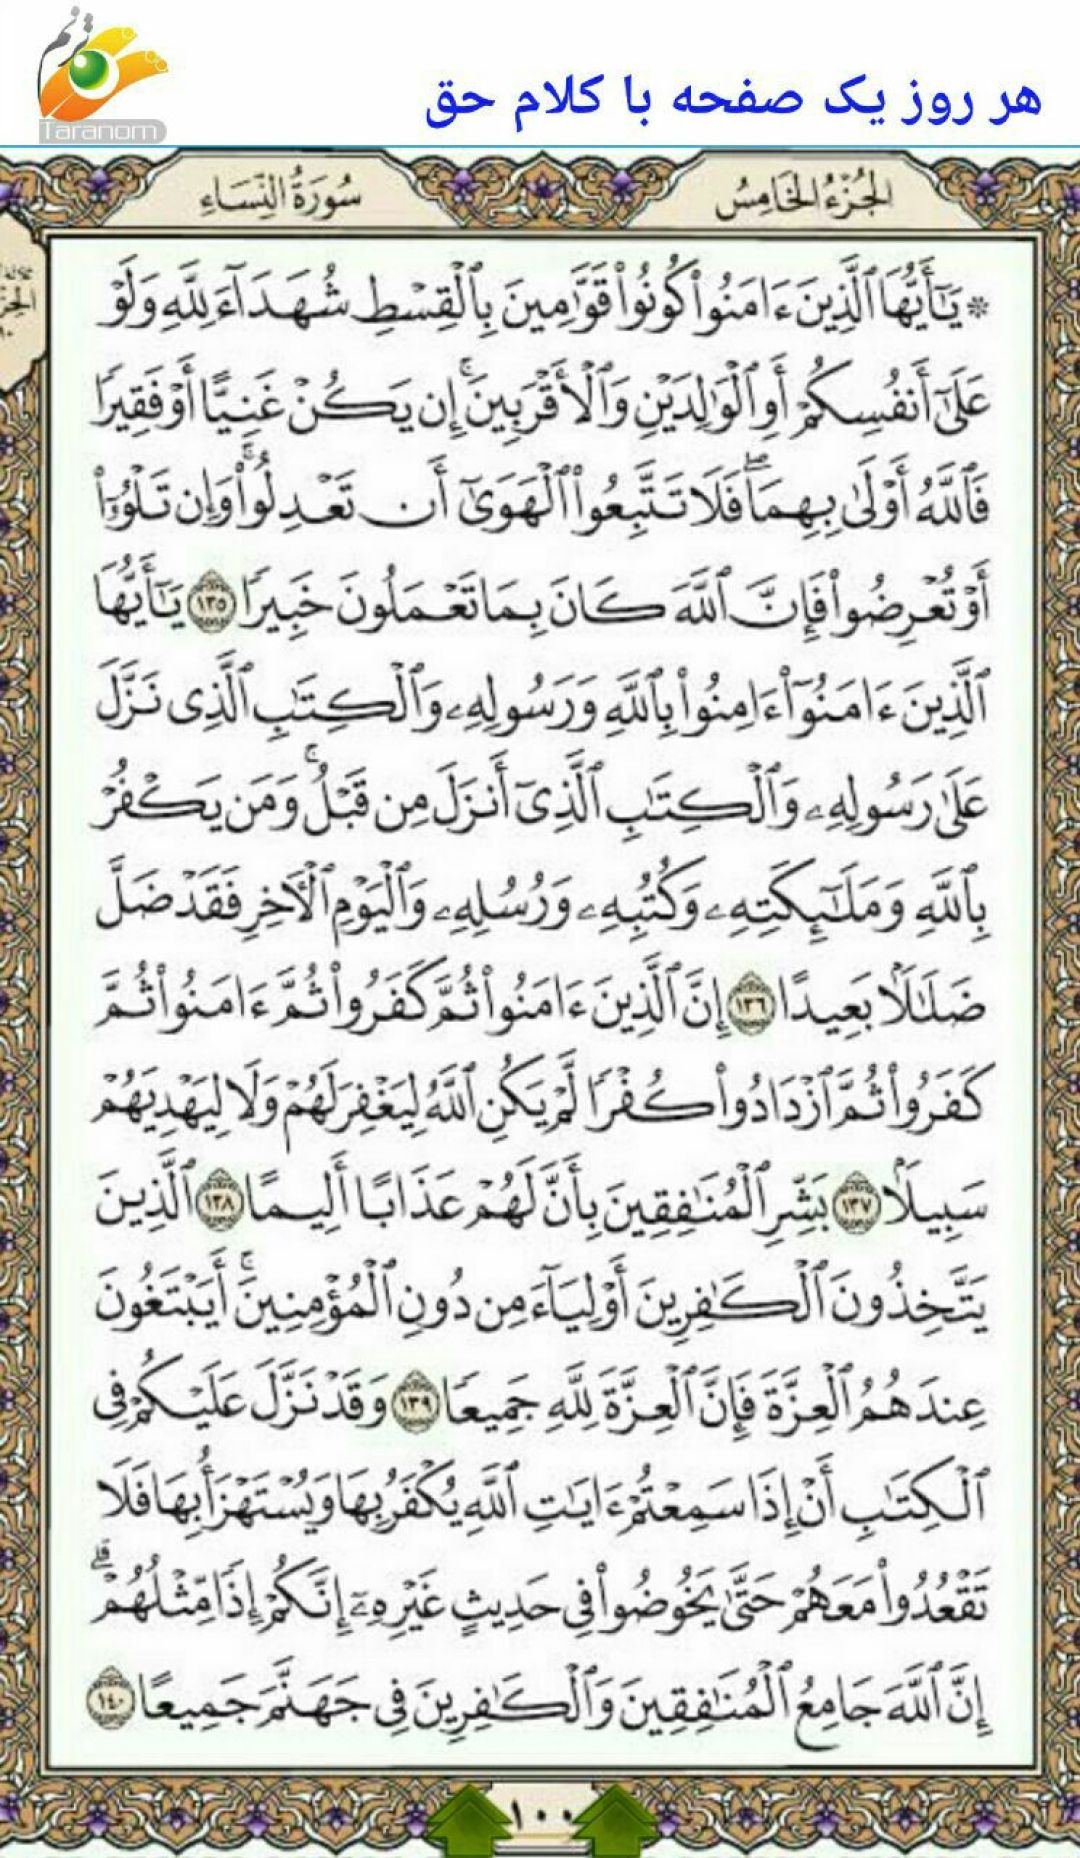 ترنم
Taranom
هر روز یک صفحه با کلام حق
الجُزْءُ الخَامِسُ
سُورَةُ النِّسَاءِ
۞ يَٰٓأَيُّهَا ٱلَّذِينَ ءَامَنُوا۟ كُونُوا۟ قَوَّٰمِينَ بِٱلْقِسْطِ شُهَدَآءَ لِلَّهِ وَلَوْ
عَلَىٰٓ أَنفُسِكُمْ أَوِ ٱلْوَٰلِدَيْنِ وَٱلْأَقْرَبِينَ ۚ إِن يَكُنْ غَنِيًّا أَوْ فَقِيرًا
فَٱللَّهُ أَوْلَىٰ بِهِمَا ۖ فَلَا تَتَّبِعُوا۟ ٱلْهَوَىٰٓ أَن تَعْدِلُوا۟ ۚ وَإِن تَلْوُۥٓا۟
أَوْ تُعْرِضُوا۟ فَإِنَّ ٱللَّهَ كَانَ بِمَا تَعْمَلُونَ خَبِيرًا ١٣٥ يَٰٓأَيُّهَا
ٱلَّذِينَ ءَامَنُوٓا۟ ءَامِنُوا۟ بِٱللَّهِ وَرَسُولِهِۦ وَٱلْكِتَٰبِ ٱلَّذِى نَزَّلَ
عَلَىٰ رَسُولِهِۦ وَٱلْكِتَٰبِ ٱلَّذِىٓ أَنزَلَ مِن قَبْلُ ۚ وَمَن يَكْفُرْ
بِٱللَّهِ وَمَلَٰٓئِكَتِهِۦ وَكُتُبِهِۦ وَرُسُلِهِۦ وَٱلْيَوْمِ ٱلْءَاخِرِ فَقَدْ ضَلَّ
ضَلَٰلًۢا بَعِيدًا ١٣٦ إِنَّ ٱلَّذِينَ ءَامَنُوا۟ ثُمَّ كَفَرُوا۟ ثُمَّ ءَامَنُوا۟ ثُمَّ
كَفَرُوا۟ ثُمَّ ٱزْدَادُوا۟ كُفْرًا لَّمْ يَكُنِ ٱللَّهُ لِيَغْفِرَ لَهُمْ وَلَا لِيَهْدِيَهُمْ
سَبِيلًۢا ١٣٧ بَشِّرِ ٱلْمُنَٰفِقِينَ بِأَنَّ لَهُمْ عَذَابًا أَلِيمًا ١٣٨ ٱلَّذِينَ
يَتَّخِذُونَ ٱلْكَٰفِرِينَ أَوْلِيَآءَ مِن دُونِ ٱلْمُؤْمِنِينَ ۚ أَيَبْتَغُونَ
عِندَهُمُ ٱلْعِزَّةَ فَإِنَّ ٱلْعِزَّةَ لِلَّهِ جَمِيعًا ١٣٩ وَقَدْ نَزَّلَ عَلَيْكُمْ فِى
ٱلْكِتَٰبِ أَنْ إِذَا سَمِعْتُمْ ءَايَٰتِ ٱللَّهِ يُكْفَرُ بِهَا وَيُسْتَهْزَأُ بِهَا فَلَا
تَقْعُدُوا۟ مَعَهُمْ حَتَّىٰ يَخُوضُوا۟ فِى حَدِيثٍ غَيْرِهِۦٓ ۚ إِنَّكُمْ إِذًا مِّثْلُهُمْ ۗ
إِنَّ ٱللَّهَ جَامِعُ ٱلْمُنَٰفِقِينَ وَٱلْكَٰفِرِينَ فِى جَهَنَّمَ جَمِيعًا ١٤٠
١٠٠